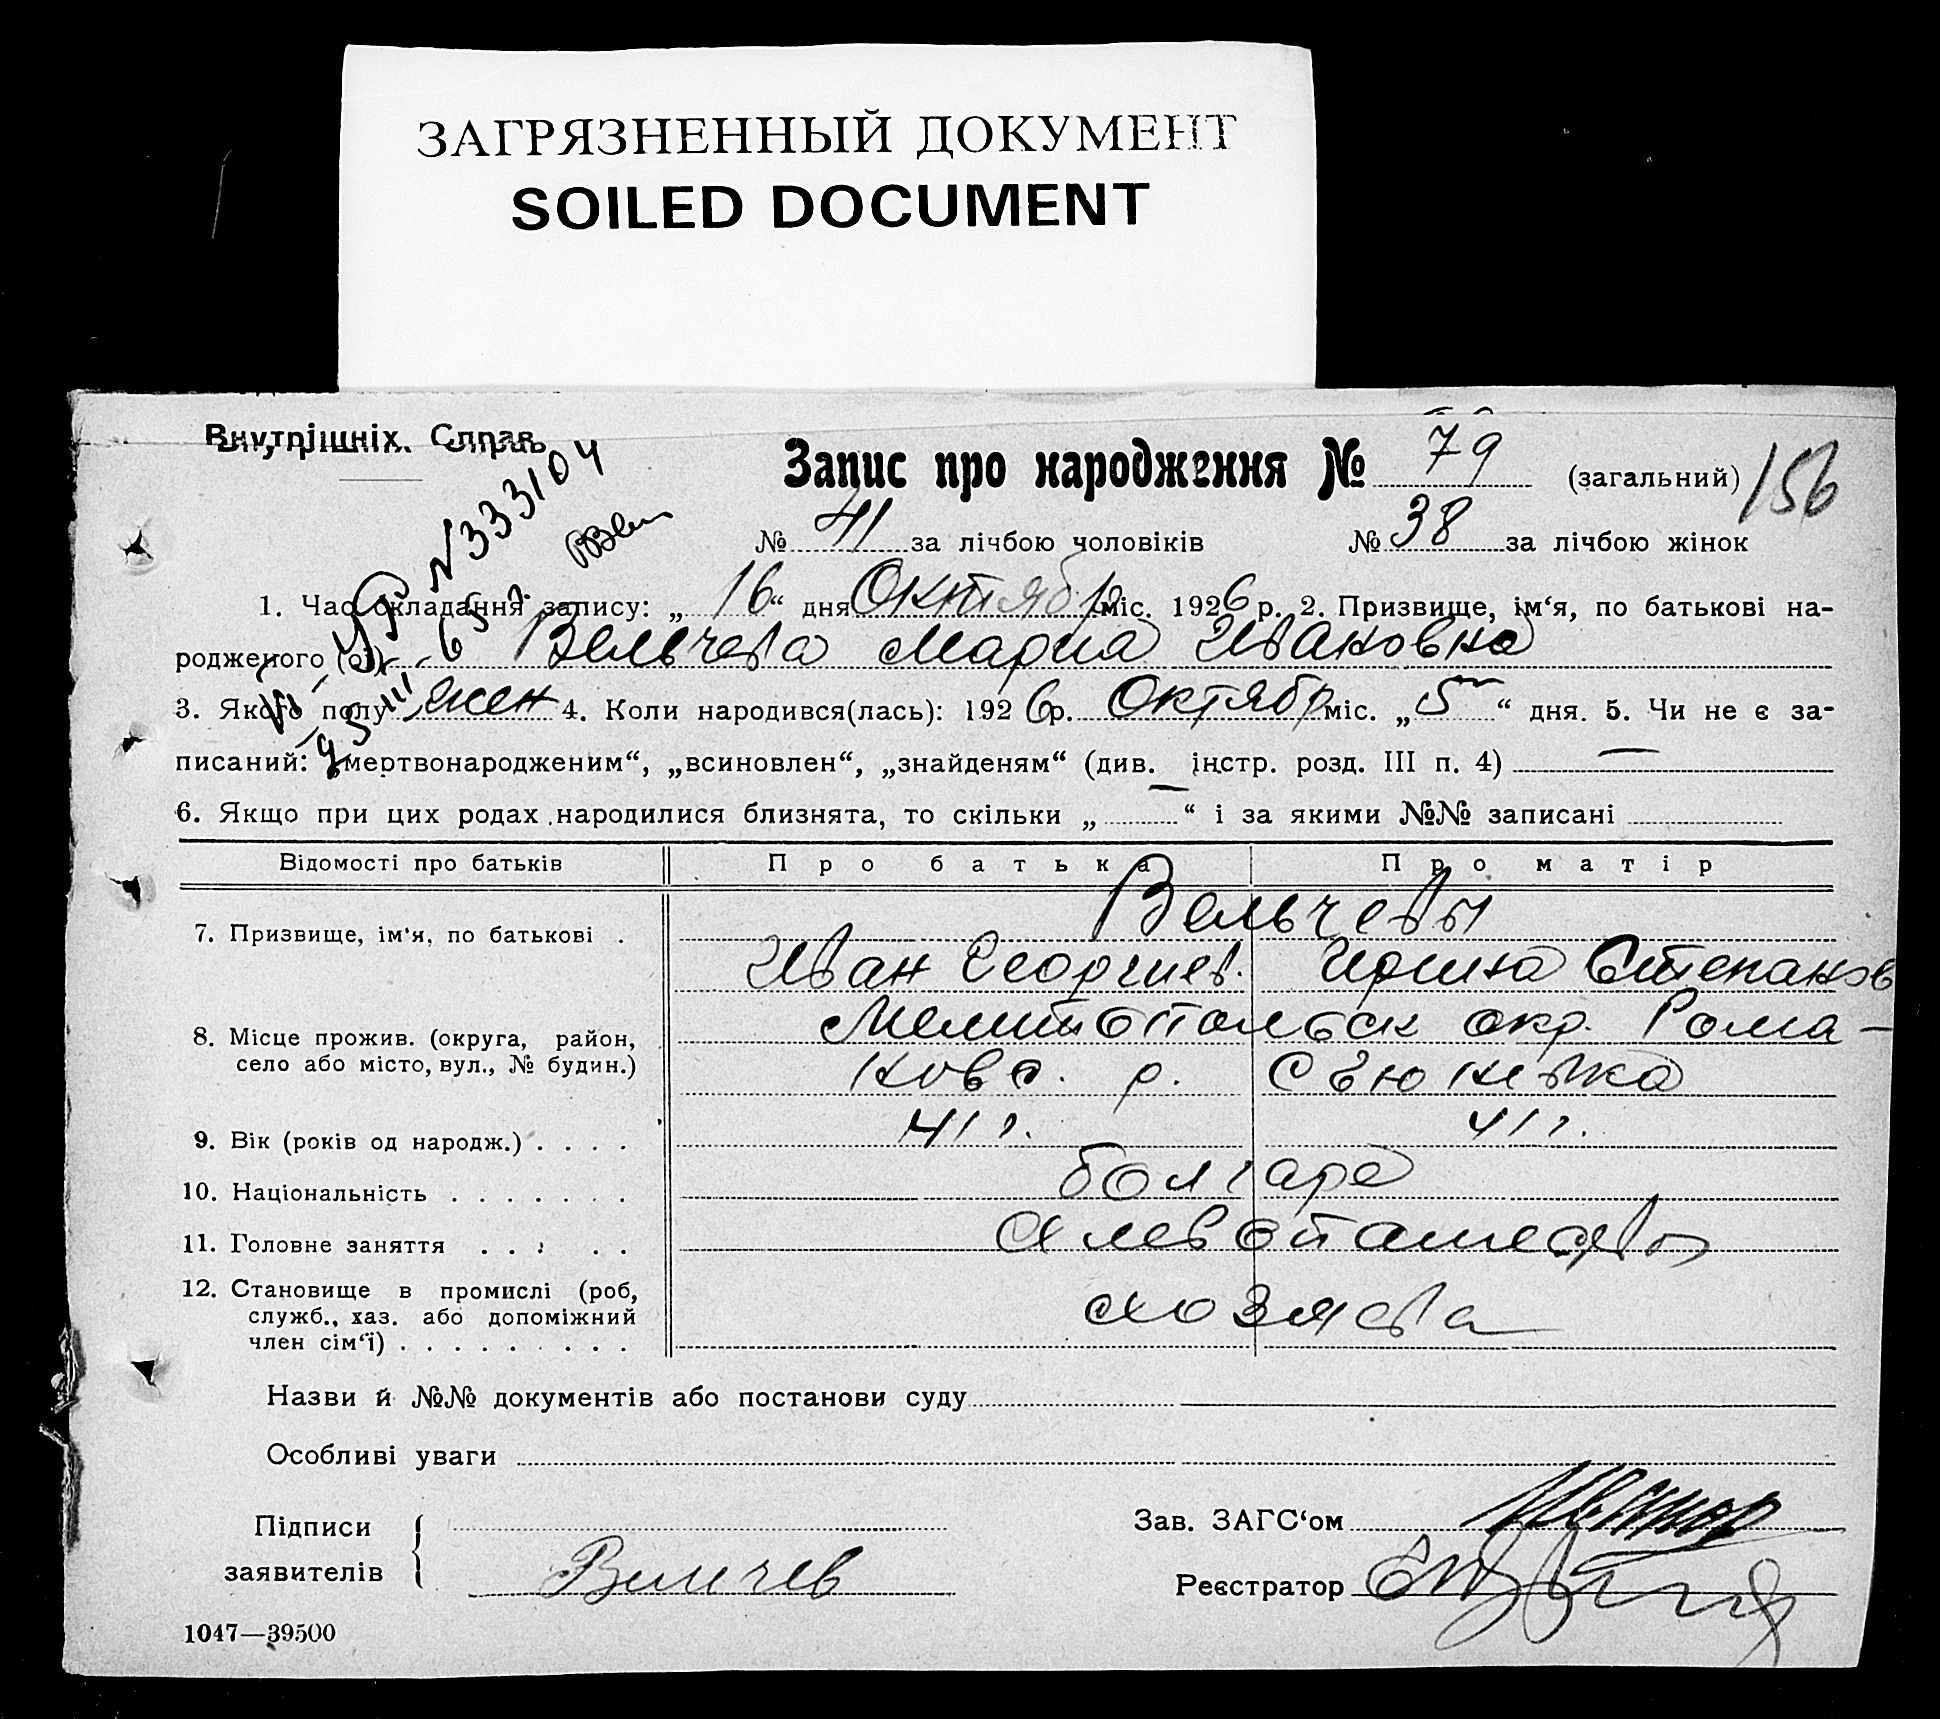 ЗАГРЯЗНЕННЫЙ ДОКУМЕНТ
SOILED DOCUMENT
Внутрішніх. Справ.
Запис про народження № 79 (загальний) 156
№ 41 за лічбою чоловіків № 38 за лічбою жінок
N 333104
1. Час складання запису: „ 16 “ дня Октября міс. 1926 р. 2. Призвище, ім‘я, по батькові на-
родженого (ої) Вельчева Мария Ивановна
3. Якого полу жен 4. Коли народився(лась): 1926 р. Октябр міс. „ 5 “ дня. 5. Чи не є за-
писаний: „мертвонародженим“, „всиновлен“, „знайденям“ (див. інстр. розд. III п. 4) —
6. Якщо при цих родах народилися близнята, то скільки „ — “ і за якими №№ записані
Відомості про батьків Про батька Про матір
Вельчевы
7. Призвище, ім‘я, по батькові .
Иван Георгиев. Ирина Степанов
8. Місце прожив. (округа, район, село або місто, вул., № будин.)
Мелитопольск окр. Рома-
новс. р.
9. Вік (років од народж.) . . . . 41 г. 41 г.
10. Національність . . . . . . . болгаре
11. Головне заняття . . . . .
12. Становище в промислі (роб, служб., хаз. або допоміжний член сім‘ї) . . . . . . . . .
Назви й №№ документів або постанови суду
Особливі уваги
Підписи заявителів
Зав. ЗАГС‘ом
Реєстратор
1047—39500